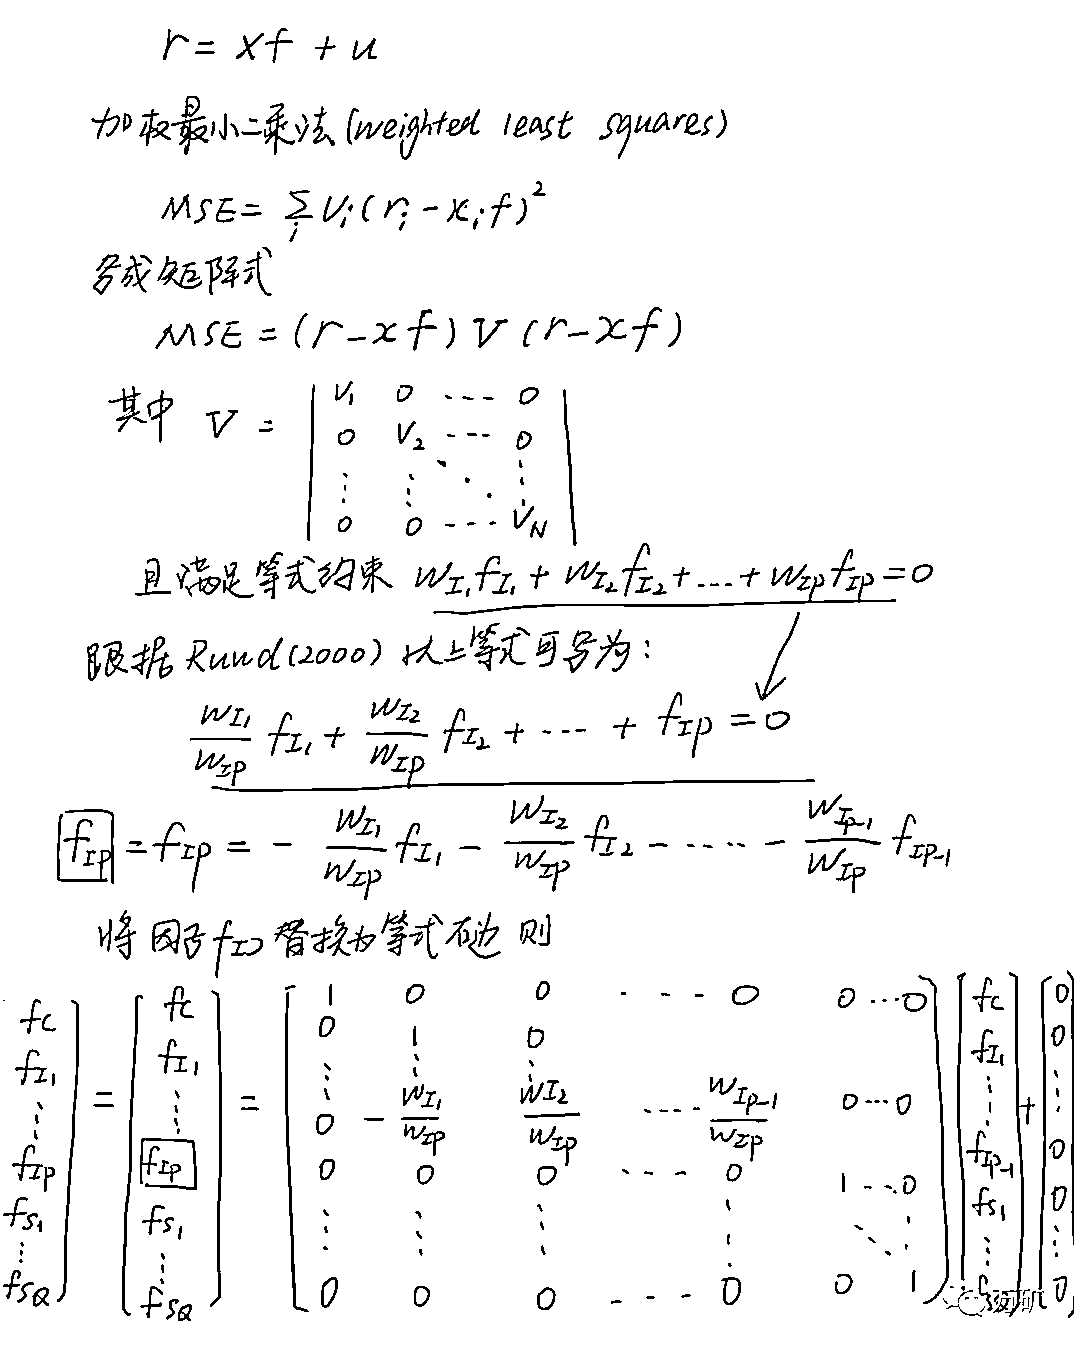 r = xf + u
加权最小二乘法(weighted least squares)
MSE = Σ_i v_i (r_i - x_i f)^2
写成矩阵式
MSE = (r - xf) V (r - xf)
其中 V = | v_1 0 ---- 0 |
| 0 v_2 ---- 0 |
| ⋮ ⋮ ⋱ ⋮ |
| 0 0 ---- v_N |
且满足等式约束 w_I1 f_I1 + w_I2 f_I2 + ... + w_IP f_IP = 0
跟据 Ruud(2000) 以上等式可写为:
w_I1/w_IP f_I1 + w_I2/w_IP f_I2 + ... + f_IP = 0
f_IP = f_IP = - w_I1/w_IP f_I1 - w_I2/w_IP f_I2 - ..... - w_IP-1/w_IP f_IP-1
将因子 f_IP 替换为等式右边 则
f_C f_C 1 0 0 ---- 0 0 ... 0 f_C 0
f_I1 f_I1 0 1 0 f_I1 0
⋮ = ⋮ = ⋮ ⋮ ⋮ ⋮ + ⋮
f_IP f_IP 0 - w_I1/w_IP w_I2/w_IP ---- w_IP-1/w_IP 0 ... 0 f_IP-1 0
f_S1 f_S1 0 0 0 ---- 0 1 ... 0 f_S1 0
⋮ ⋮ ⋮ ⋮ ⋮ ⋮ ⋱ ⋮ ⋮ ⋮
f_SQ f_SQ 0 0 0 ---- 0 0 1 0